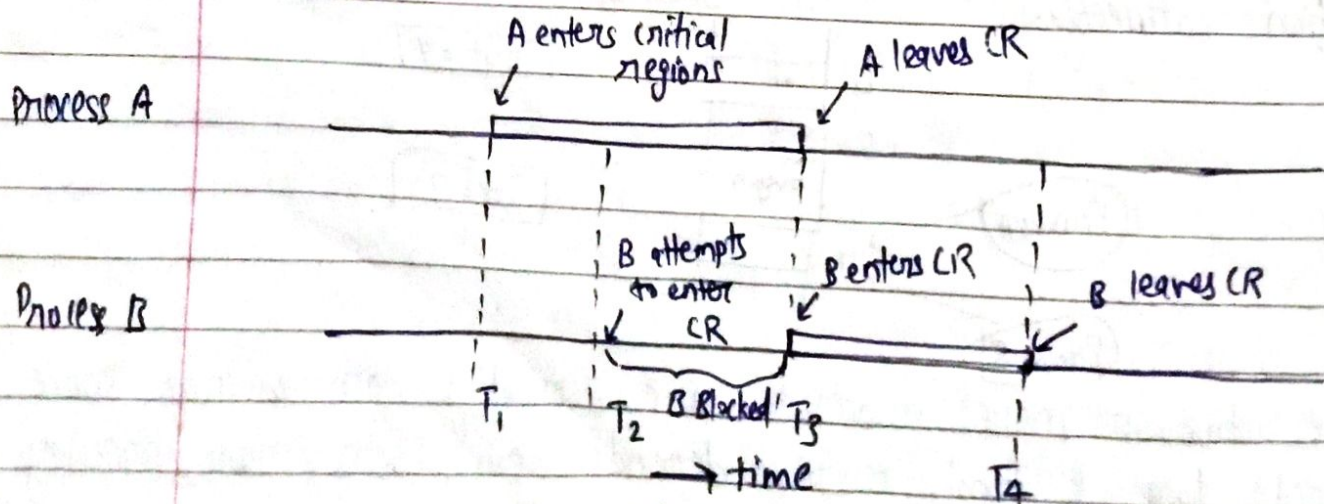 A enters critical
regions
A leaves CR
Process A
B attempts
to enter
CR
B enters CR
B leaves CR
Process B
T1
T2
B Blocked
T3
→ time
T4